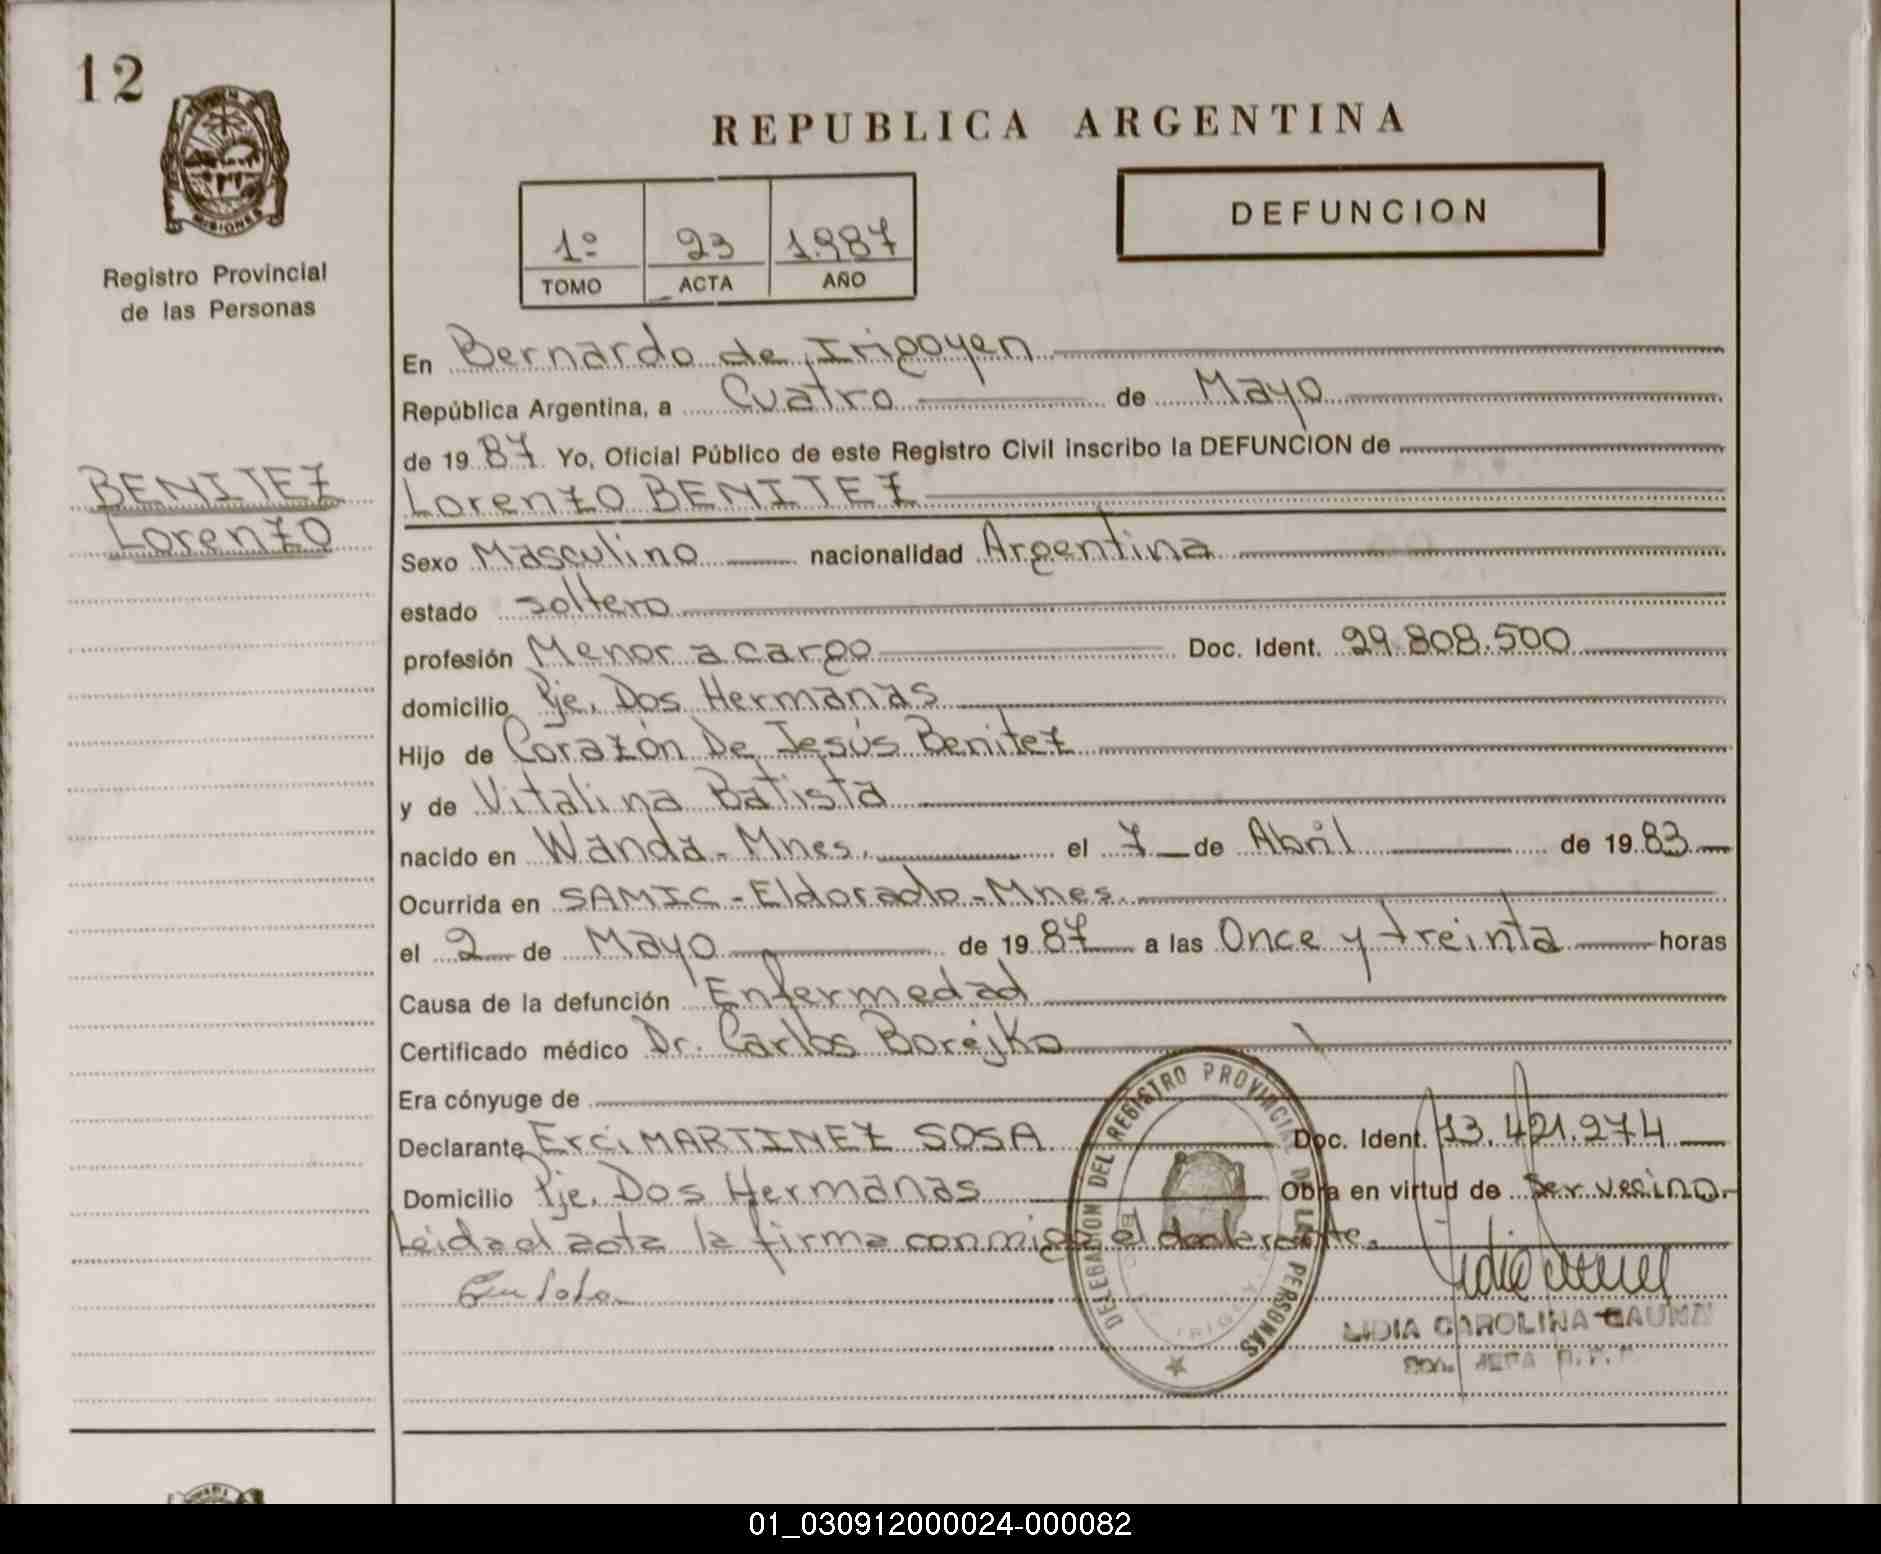 12
MISIONES
Registro Provincial
de las Personas
REPUBLICA ARGENTINA
1º 23 1.987
TOMO ACTA AÑO
DEFUNCION
En Bernardo de Irigoyen
República Argentina, a Cuatro de Mayo
de 19 87 Yo, Oficial Público de este Registro Civil inscribo la DEFUNCION de
BENITEZ
Lorenzo
Lorenzo BENITEZ
Sexo Masculino nacionalidad Argentina
estado soltero
profesión Menor a cargo Doc. Ident. 29.808.500
domicilio Pje. Dos Hermanas
Hijo de Corazón De Jesús Benitez
y de Vitalina Batista
nacido en Wanda - Mnes. el 7 de Abril de 19 83
Ocurrida en SAMIC - Eldorado - Mnes.
el 2 de Mayo de 19 87 a las Once y treinta horas
Causa de la defunción Enfermedad
Certificado médico Dr. Carlos Borejko
Era cónyuge de
Declarante Erci MARTINEZ SOSA Doc. Ident. 13.421.974
Domicilio Pje. Dos Hermanas Obra en virtud de Ser vecino.
Leida el acta la firma conmigo el declarante.
DELEGACION DEL REGISTRO PROVINCIAL DE LAS PERSONAS
LIDIA CAROLINA
01_030912000024-000082